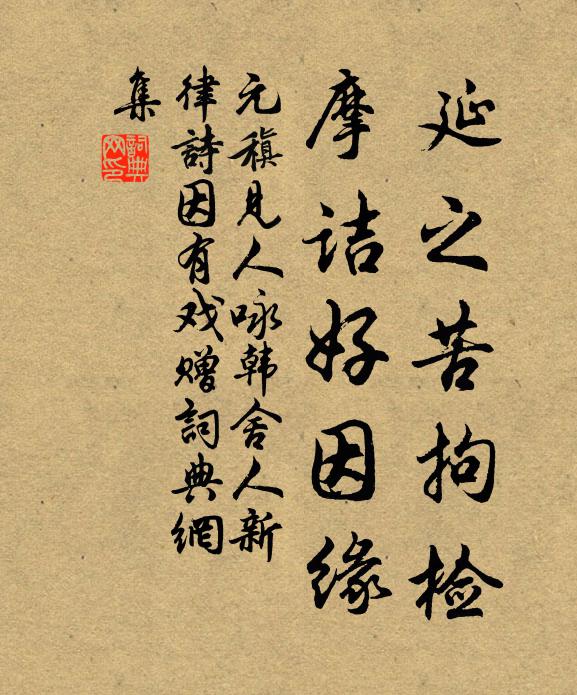 延之苦拘检
摩诘好因缘
元稹見人咏韩舍人新
律詩因有戏赠詞典網
集
詞典網印